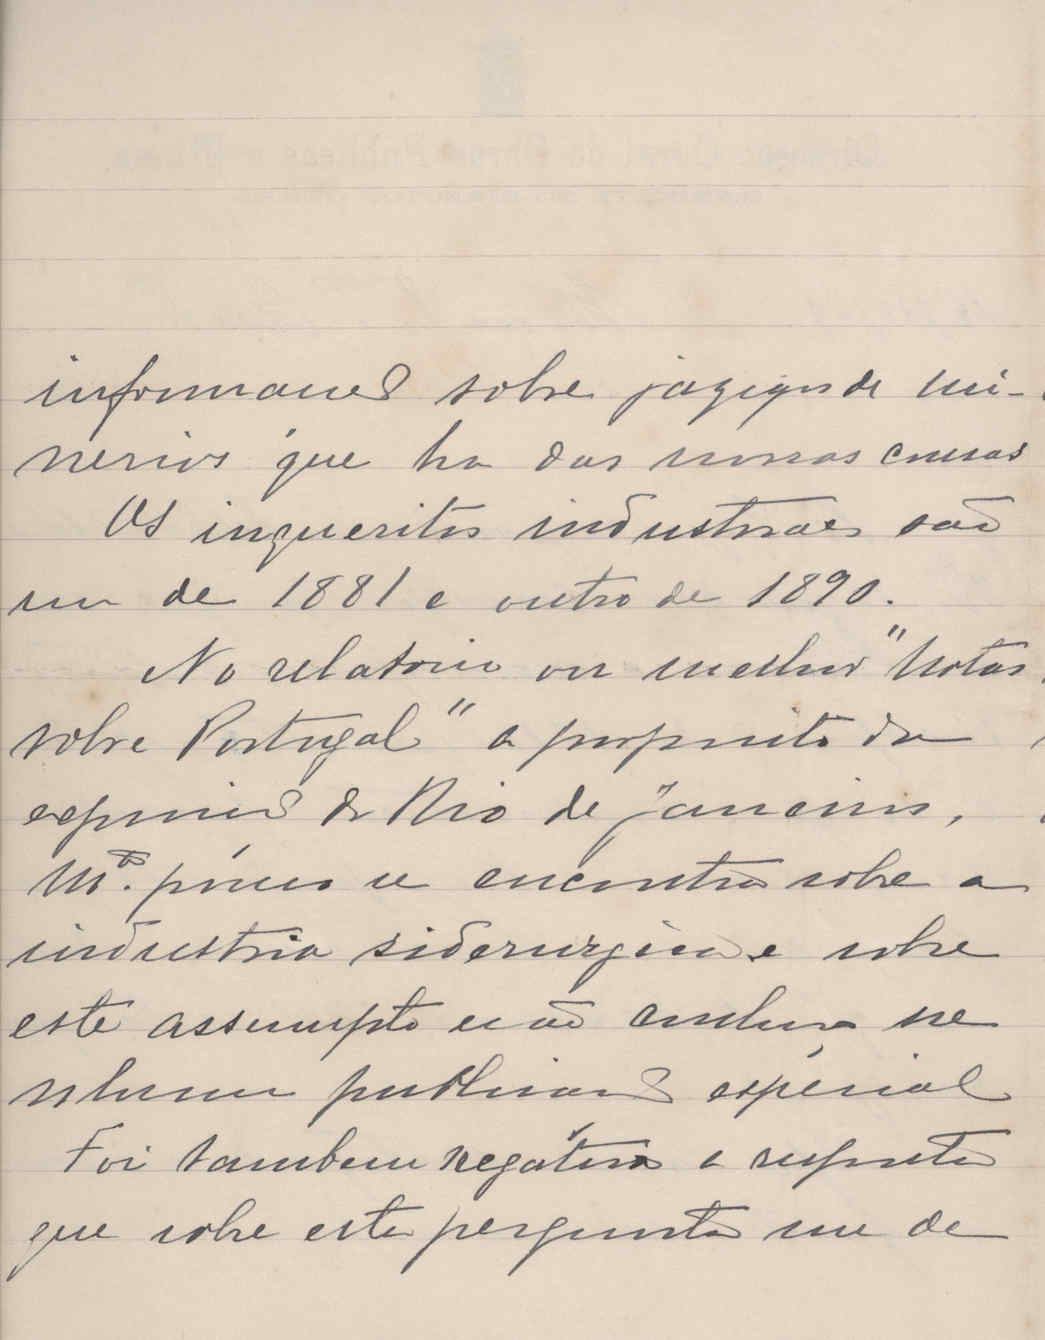 informações sobre jazigos de mi-
nerios que ha das nossas cousas
Os inqueritos industriaes são
um de 1881 e outro de 1890.
No relatorio ou melhor "Notas
sobre Portugal" a proposito da
exposição do Rio de Janeiro,
Mto. pouco se encontra sobre a
industria siderurgica e sobre
este assumpto não conheço ne
nhuma publicação especial
Foi tambem negativa a resposta
que sobre esta pergunta me de